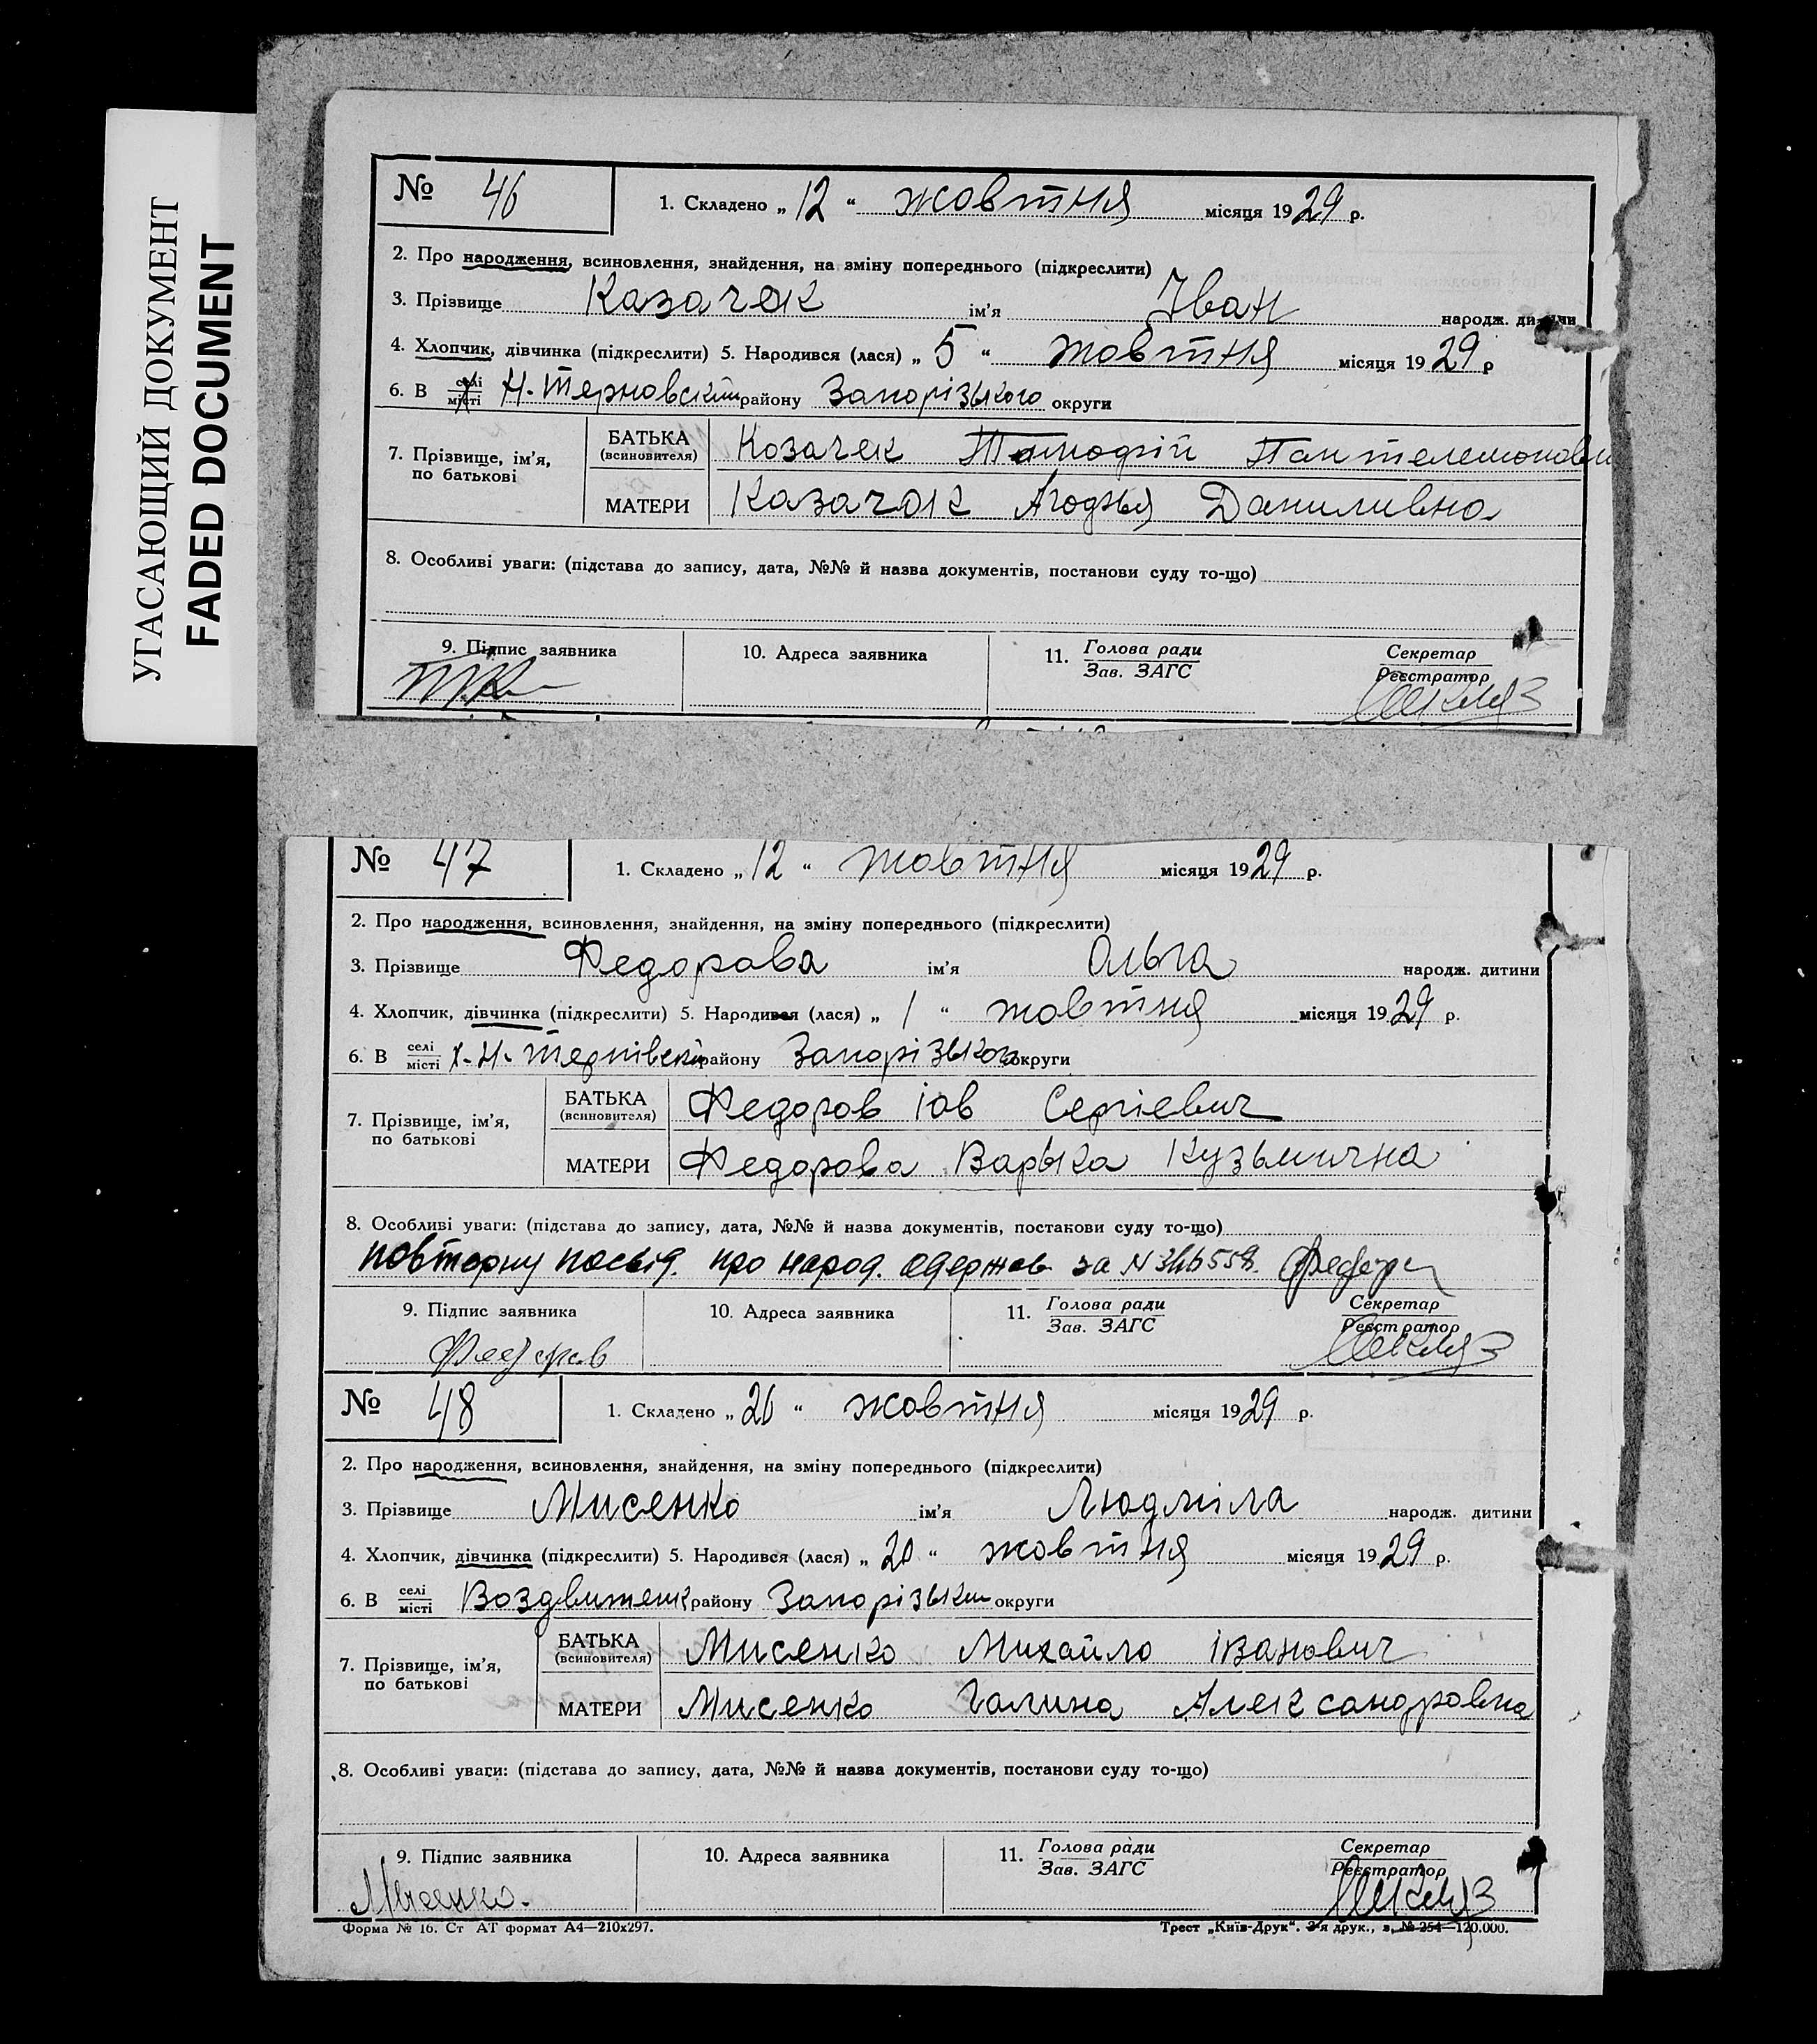 УГАСАЮЩИЙ ДОКУМЕНТ
FADED DOCUMENT
№ 46 1. Складено „ 12 “ жовтня місяця 19 29 р.
2. Про народження, всиновлення, знайдення, на зміну попереднього (підкреслити)
3. Прізвище Казачек ім'я Іван народж. дитини
4. Хлопчик, дівчинка (підкреслити) 5. Народився (лася) „ 5 “ жовтня місяця 19 29 р
6. В селі місті Н-Терновський району Запорізького округи
7. Прізвище, ім'я, по батькові
БАТЬКА (всиновителя) Козачек Тимофій Пантелемонови
МАТЕРИ Казачок Даниливна
8. Особливі уваги: (підстава до запису, дата, №№ й назва документів, постанови суду то-що)
9. Підпис заявника 10. Адреса заявника 11. Голова ради Зав. ЗАГС Секретар Реєстратор
№ 47 1. Складено „ 12 “ жовтня місяця 19 29 р.
2. Про народження, всиновлення, знайдення, на зміну попереднього (підкреслити)
3. Прізвище Федорова ім'я Ольга народж. дитини
4. Хлопчик, дівчинка (підкреслити) 5. Народився (лася) „ 1 “ жовтня місяця 19 29 р.
6. В селі місті х-Н-Тернівськ району Запорізького округи
7. Прізвище, ім'я, по батькові
БАТЬКА (всиновителя) Федоров Іов Сергієвич
МАТЕРИ Федорова Варька Кузьмична
8. Особливі уваги: (підстава до запису, дата, №№ й назва документів, постанови суду то-що)
повторну посвід. про народ. одержав за N
9. Підпис заявника 10. Адреса заявника 11. Голова ради Зав. ЗАГС Секретар Реєстратор
Федоров
№ 48 1. Складено „ 20 “ жовтня місяця 19 29 р.
2. Про народження, всиновлення, знайдення, на зміну попереднього (підкреслити)
3. Прізвище Мисенко ім'я Людміла народж. дитини
4. Хлопчик, дівчинка (підкреслити) 5. Народився (лася) „ 20 “ жовтня місяця 19 29 р.
6. В селі місті Воздвиженк району Запорізьки округи
7. Прізвище, ім'я, по батькові
БАТЬКА (всиновителя) Мисенко Михайло Іванович
МАТЕРИ Мисенко Галина Александровна
8. Особливі уваги: (підстава до запису, дата, №№ й назва документів, постанови суду то-що)
9. Підпис заявника 10. Адреса заявника 11. Голова ради Зав. ЗАГС Секретар Реєстратор
Мисенко.
Форма № 16. Ст АТ формат А4—210х297. Трест „Київ-Друк“. 3-я друк., з. № 254—120.000.